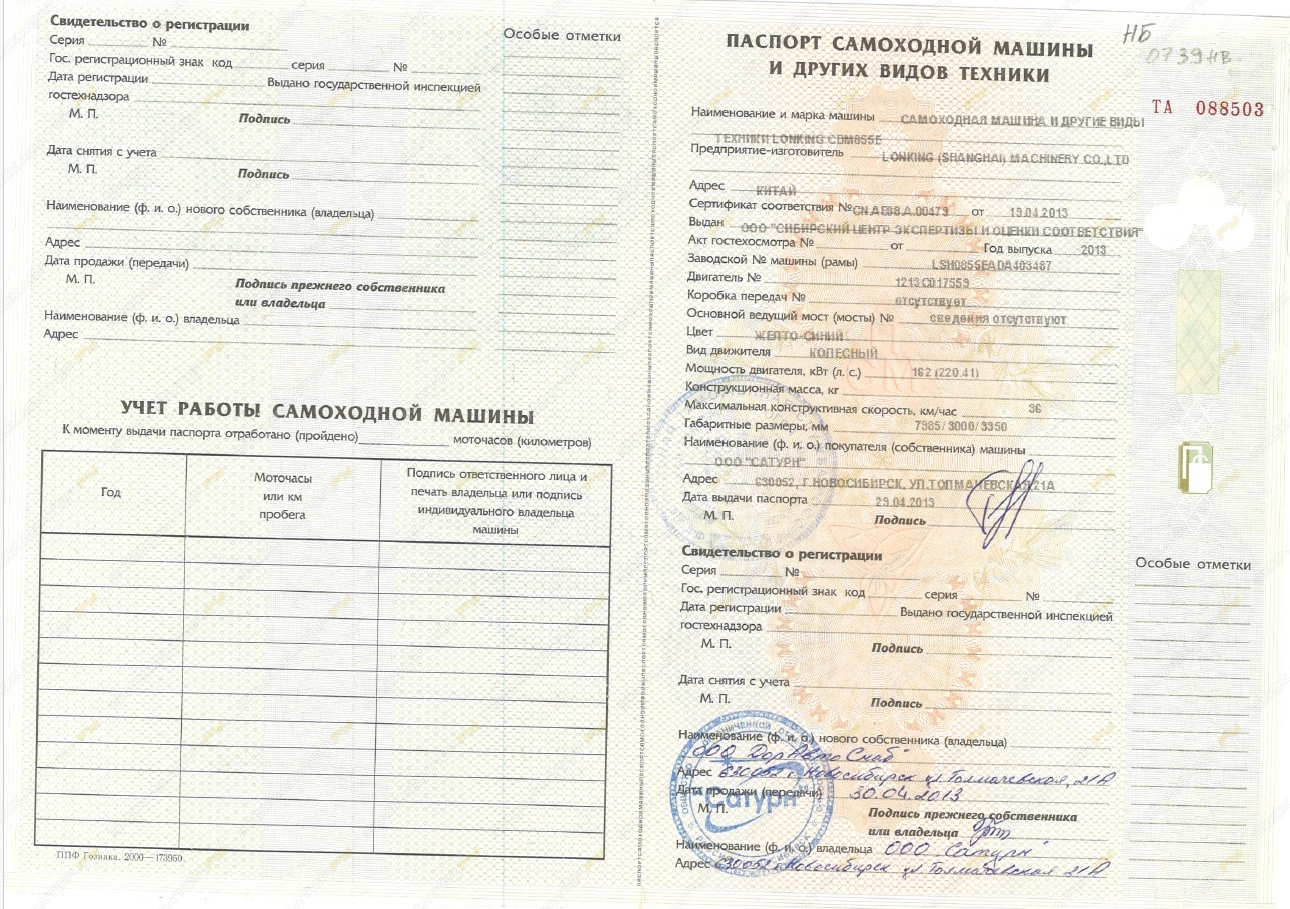 Свидетельство о регистрации
Серия № 
Гос. регистрационный знак код серия №
Дата регистрации Выдано государственной инспекцией
гостехнадзора
М. П. Подпись
Дата снятия с учета
М. П. Подпись
Наименование (ф. и. о.) нового собственника (владельца)
Адрес
Дата продажи (передачи)
М. П. Подпись прежнего собственника
или владельца
Наименование (ф. и. о.) владельца
Адрес
Особые отметки
УЧЕТ РАБОТЫ САМОХОДНОЙ МАШИНЫ
К моменту выдачи паспорта отработано (пройдено) моточасов (километров)
Год
Моточасы
или км
пробега
Подпись ответственного лица и
печать владельца или подпись
индивидуального владельца
машины
ППФ Гознака. 2000—173950.
ПАСПОРТ САМОХОДНОЙ МАШИНЫ
И ДРУГИХ ВИДОВ ТЕХНИКИ
НБ
0739
ТА 088503
Наименование и марка машины САМОХОДНАЯ МАШИНА И ДРУГИЕ ВИДЫ
ТЕХНИКИ LONKING CDM855E
Предприятие-изготовитель LONKING (SHANGHAI) MACHINERY CO.,LTD
Адрес КИТАЙ
Сертификат соответствия № CN.АЕ88.А.00473 от 19.04.2013
Выдан ООО "СИБИРСКИЙ ЦЕНТР ЭКСПЕРТИЗЫ И ОЦЕНКИ СООТВЕТСТВИЯ"
Акт гостехосмотра № от Год выпуска 2013
Заводской № машины (рамы) LSH0855EADA403487
Двигатель № 1213C017559
Коробка передач № отсутствует
Основной ведущий мост (мосты) № сведения отсутствуют
Цвет ЖЕЛТО-СИНИЙ
Вид движителя КОЛЕСНЫЙ
Мощность двигателя, кВт (л. с.) 162 (220.41)
Конструкционная масса, кг
Максимальная конструктивная скорость, км/час 36
Габаритные размеры, мм 7985/ 3000/ 3350
Наименование (ф. и. о.) покупателя (собственника) машины
ООО "САТУРН"
Адрес 630052, Г.НОВОСИБИРСК, УЛ.ТОЛМАЧЕВСКАЯ,21А
Дата выдачи паспорта 29.04.2013
М. П. Подпись
Свидетельство о регистрации
Серия №
Гос. регистрационный знак код серия №
Дата регистрации Выдано государственной инспекцией
гостехнадзора
М. П. Подпись
Дата снятия с учета
М. П. Подпись
Наименование (ф. и. о.) нового собственника (владельца)
ООО "ДорАвтоСнаб"
Адрес 630052 г. Новосибирск ул Толмачевская, 21А
Дата продажи (передачи) 30.04.2013
М. П. "Сатурн"
Подпись прежнего собственника
или владельца
Наименование (ф. и. о.) владельца ООО "Сатурн"
Адрес 630052 г. Новосибирск ул Толмачевская 21А
Особые отметки